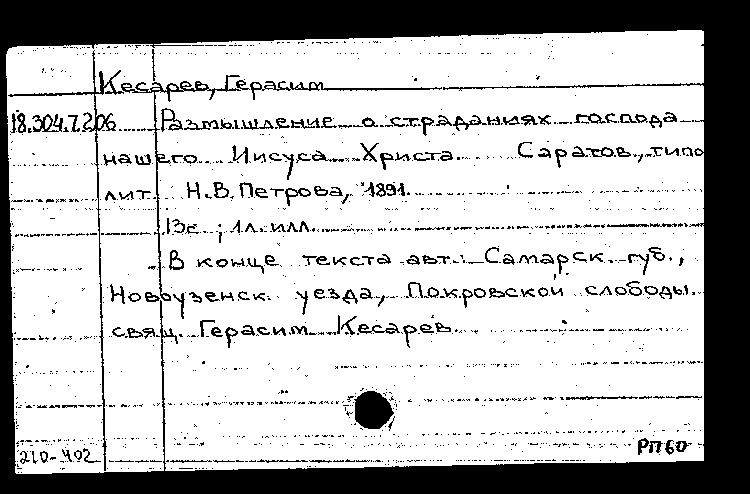 Кесарев, Герасим
18.304.7.206 Размышление о страданиях господа
нашего Иисуса Христа. Саратов., типо
лит. Н.В. Петрова, 1891.
13с ; 1л. илл.
В конце текста авт.: Самарск. губ.,
Новоузенск. уезда, Покровской слободы
свящ. Герасим Кесарев
210-402 РП60